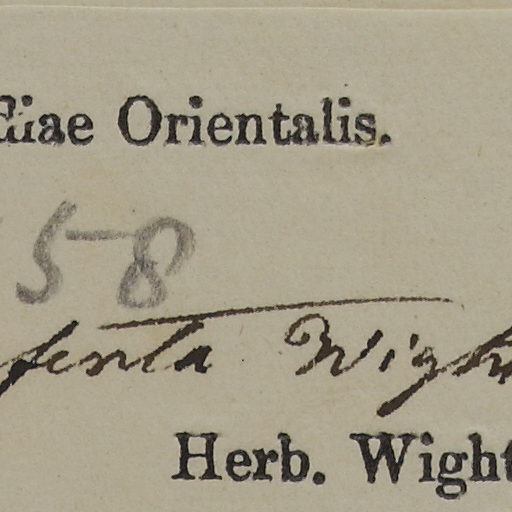 diae Orientalis.
58
Wigh
Herb. Wight